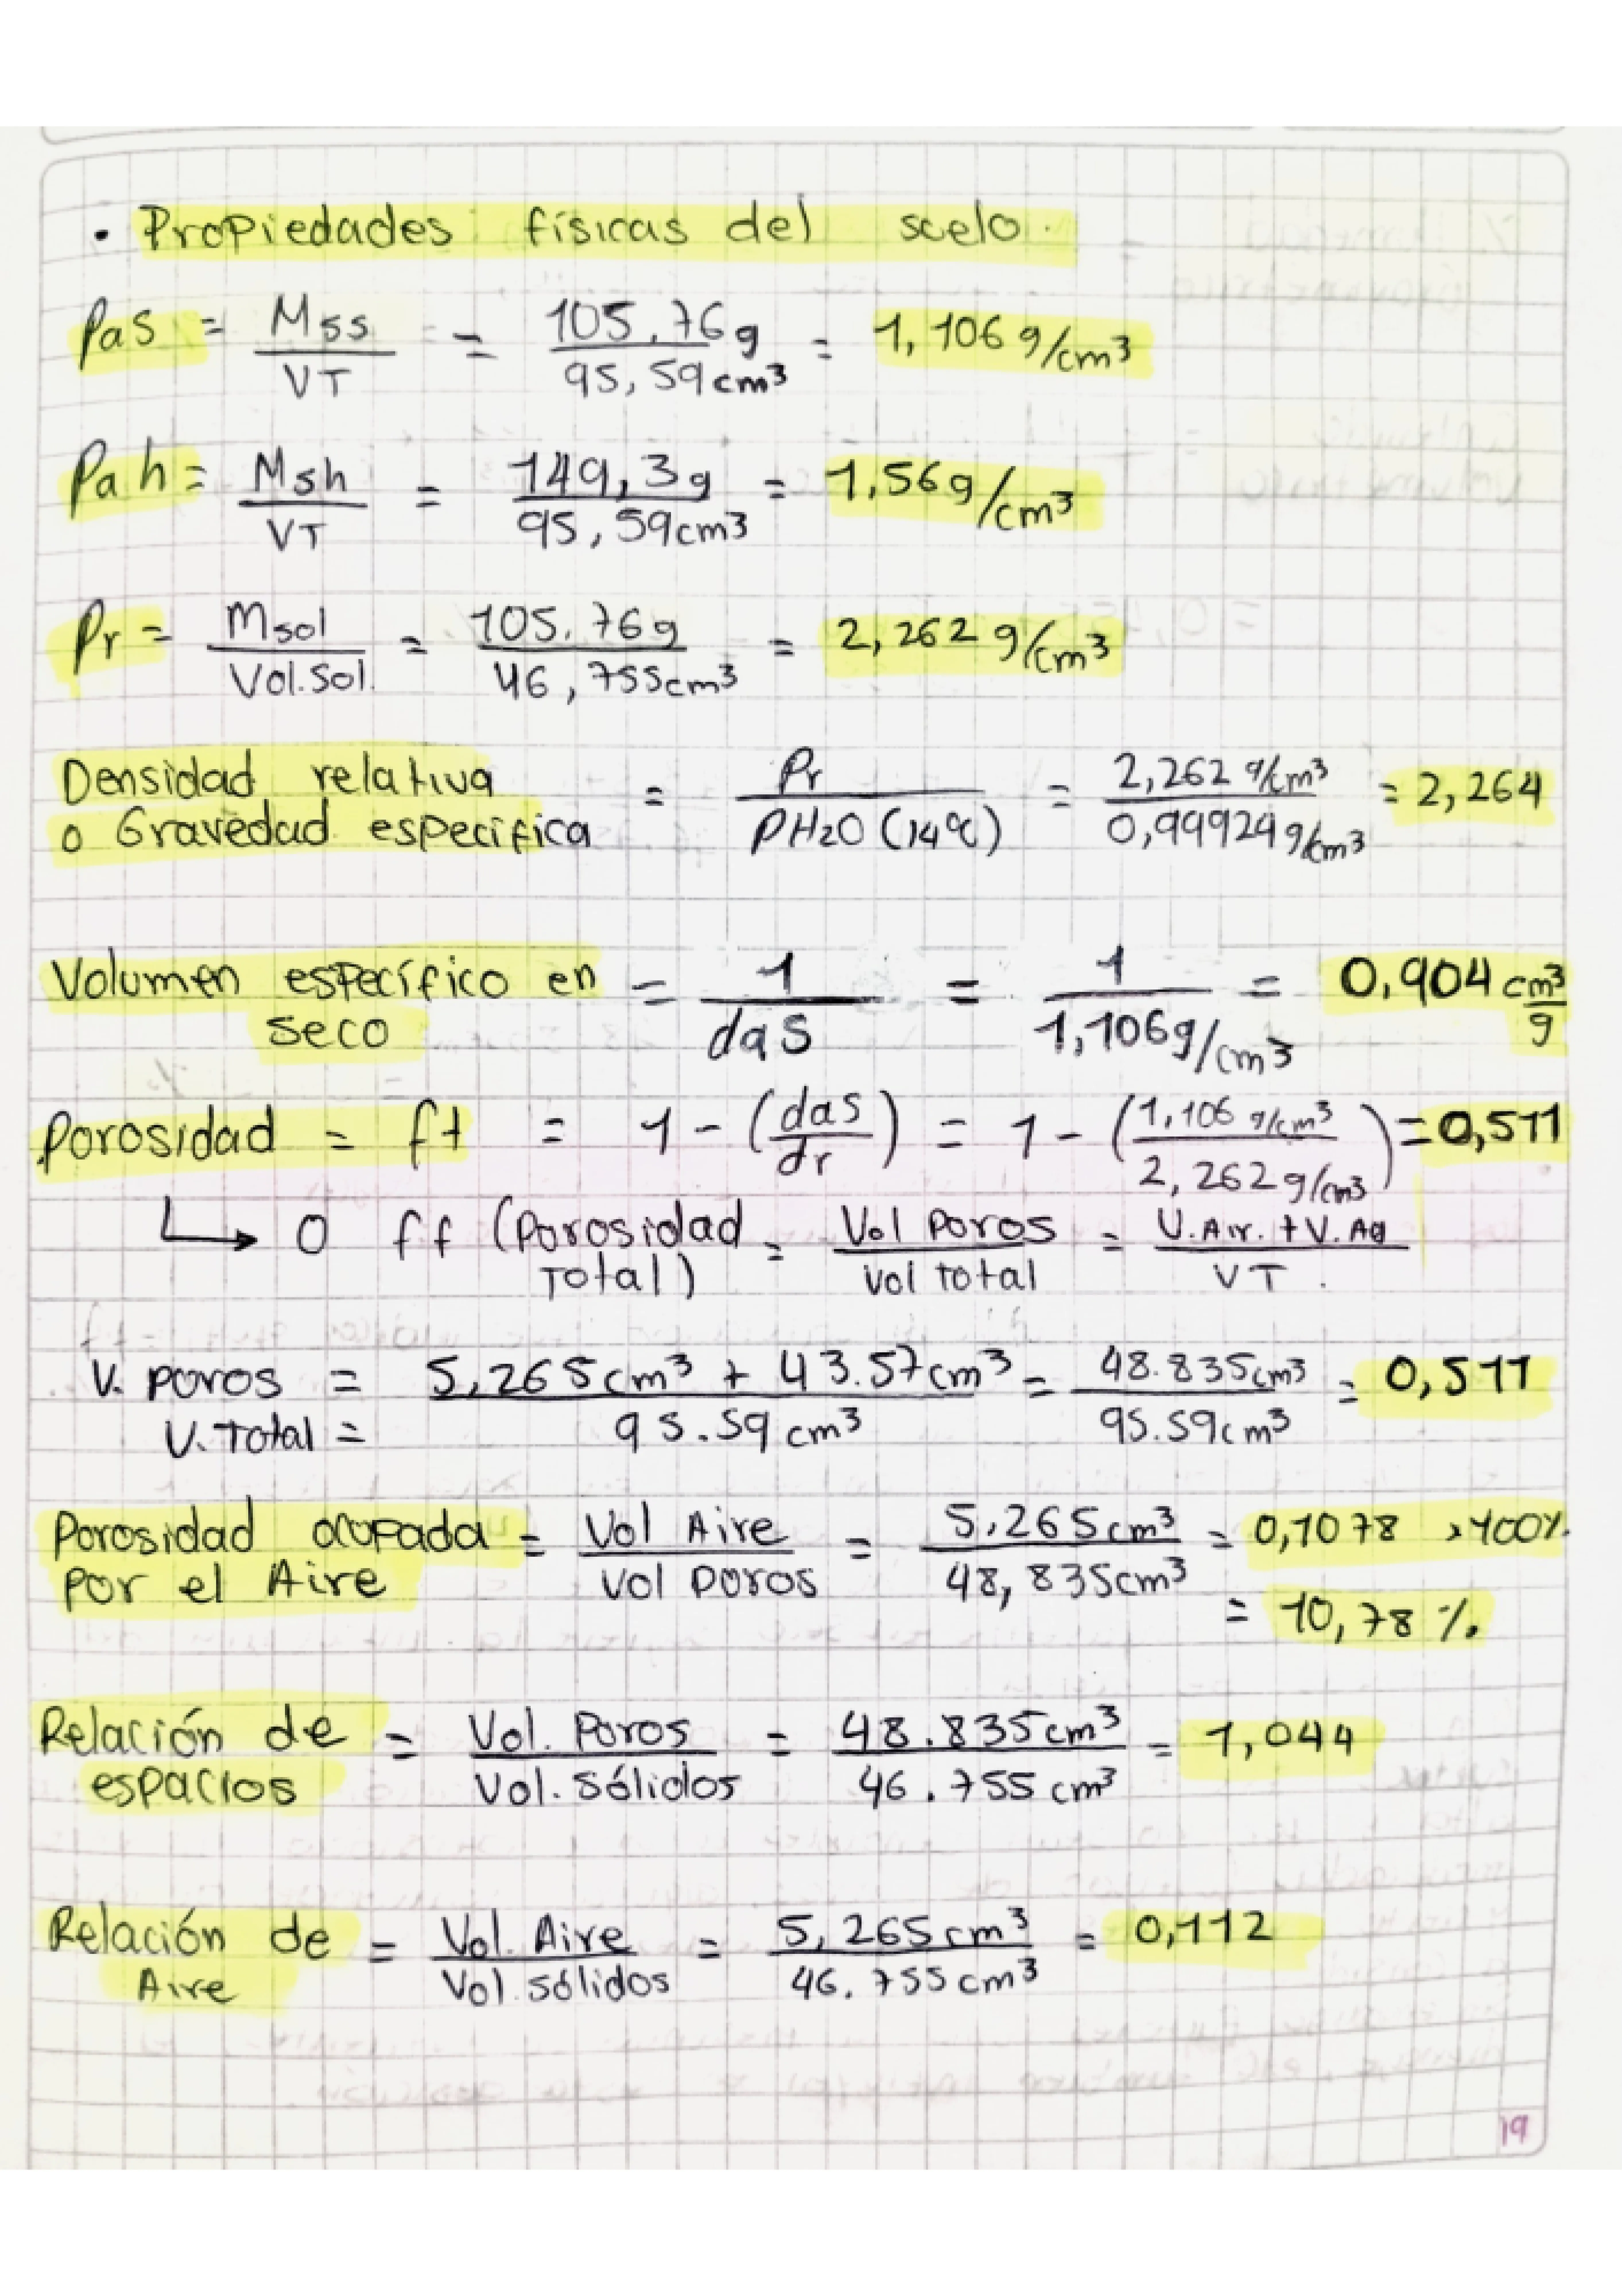 • Propiedades físicas del suelo.
Pas = Mss / VT = 105.76g / 95,59cm³ = 1,106 g/cm³
Pah = Msh / VT = 149,3g / 95,59cm³ = 1,56g/cm³
Pr = Msol / Vol.Sol. = 105.76g / 46,755cm³ = 2,262 g/cm³
Densidad relativa
o Gravedad especifica = Pr / PH2O (14°C) = 2,262 g/cm³ / 0,99924g/cm³ = 2,264
Volumen específico en
seco = 1 / das = 1 / 1,106g/cm³ = 0,904 cm³/g
Porosidad = ft = 1 - (das / dr) = 1 - (1,106 g/cm³ / 2,262g/cm³) = 0,511
↳ O ff (Porosidad Total) = Vol Poros / Vol total = V.Air. + V.Ag / VT.
V. poros = / V. Total = 5,265cm³ + 43.57cm³ / 95.59 cm³ = 48.835cm³ / 95.59cm³ = 0,511
Porosidad ocupada
por el Aire = Vol Aire / Vol poros = 5,265cm³ / 48,835cm³ = 0,1078 x100%
= 10,78 %.
Relación de
espacios = Vol. Poros / Vol. Sólidos = 48.835cm³ / 46.755 cm³ = 1,044
Relación de
Aire = Vol. Aire / Vol. sólidos = 5,265cm³ / 46.755cm³ = 0,112
19